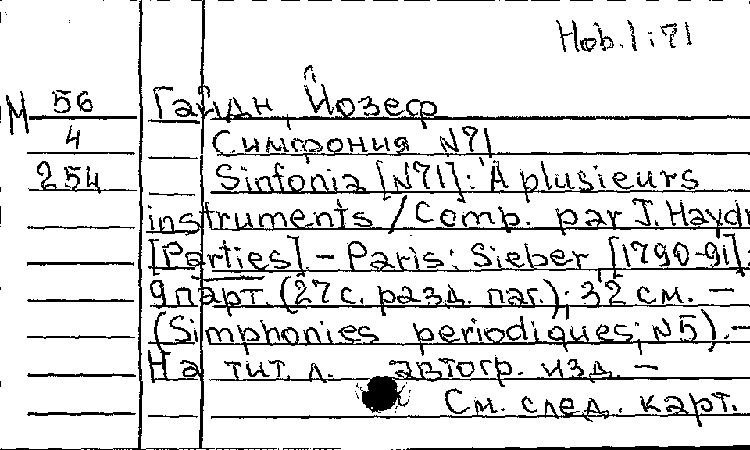 Hob. I : 71
М 56 Гайдн, Йозеф
4 Симфония N71
254 Sinfonia [N71]: A plusieurs
instruments / Comp. par J. Haydn
[Parties] – Paris: Sieber, [1790-91].
9 парт. (27 с. разд. паг.); 32 см. –
(Simphonies periodiques; N5). –
На тит. л. автогр. изд. –
См. след. карт.